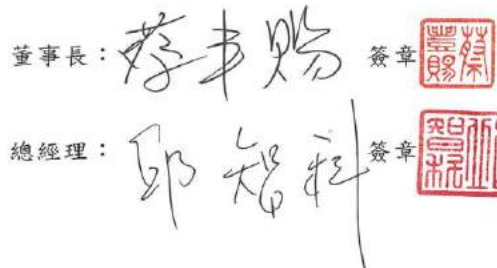 董事長：蔡丰賜 簽章 蔡豐賜
總經理：邱智科 簽章